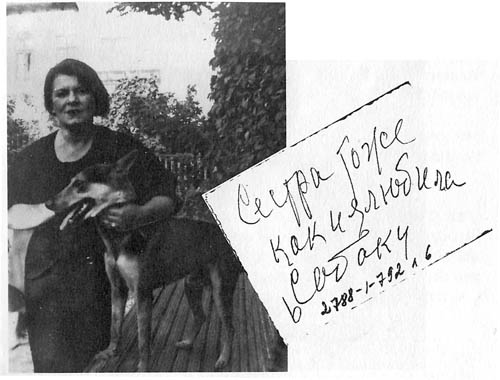 Сестра тоже
как и я любила
собаку
2788-1-792 л 6